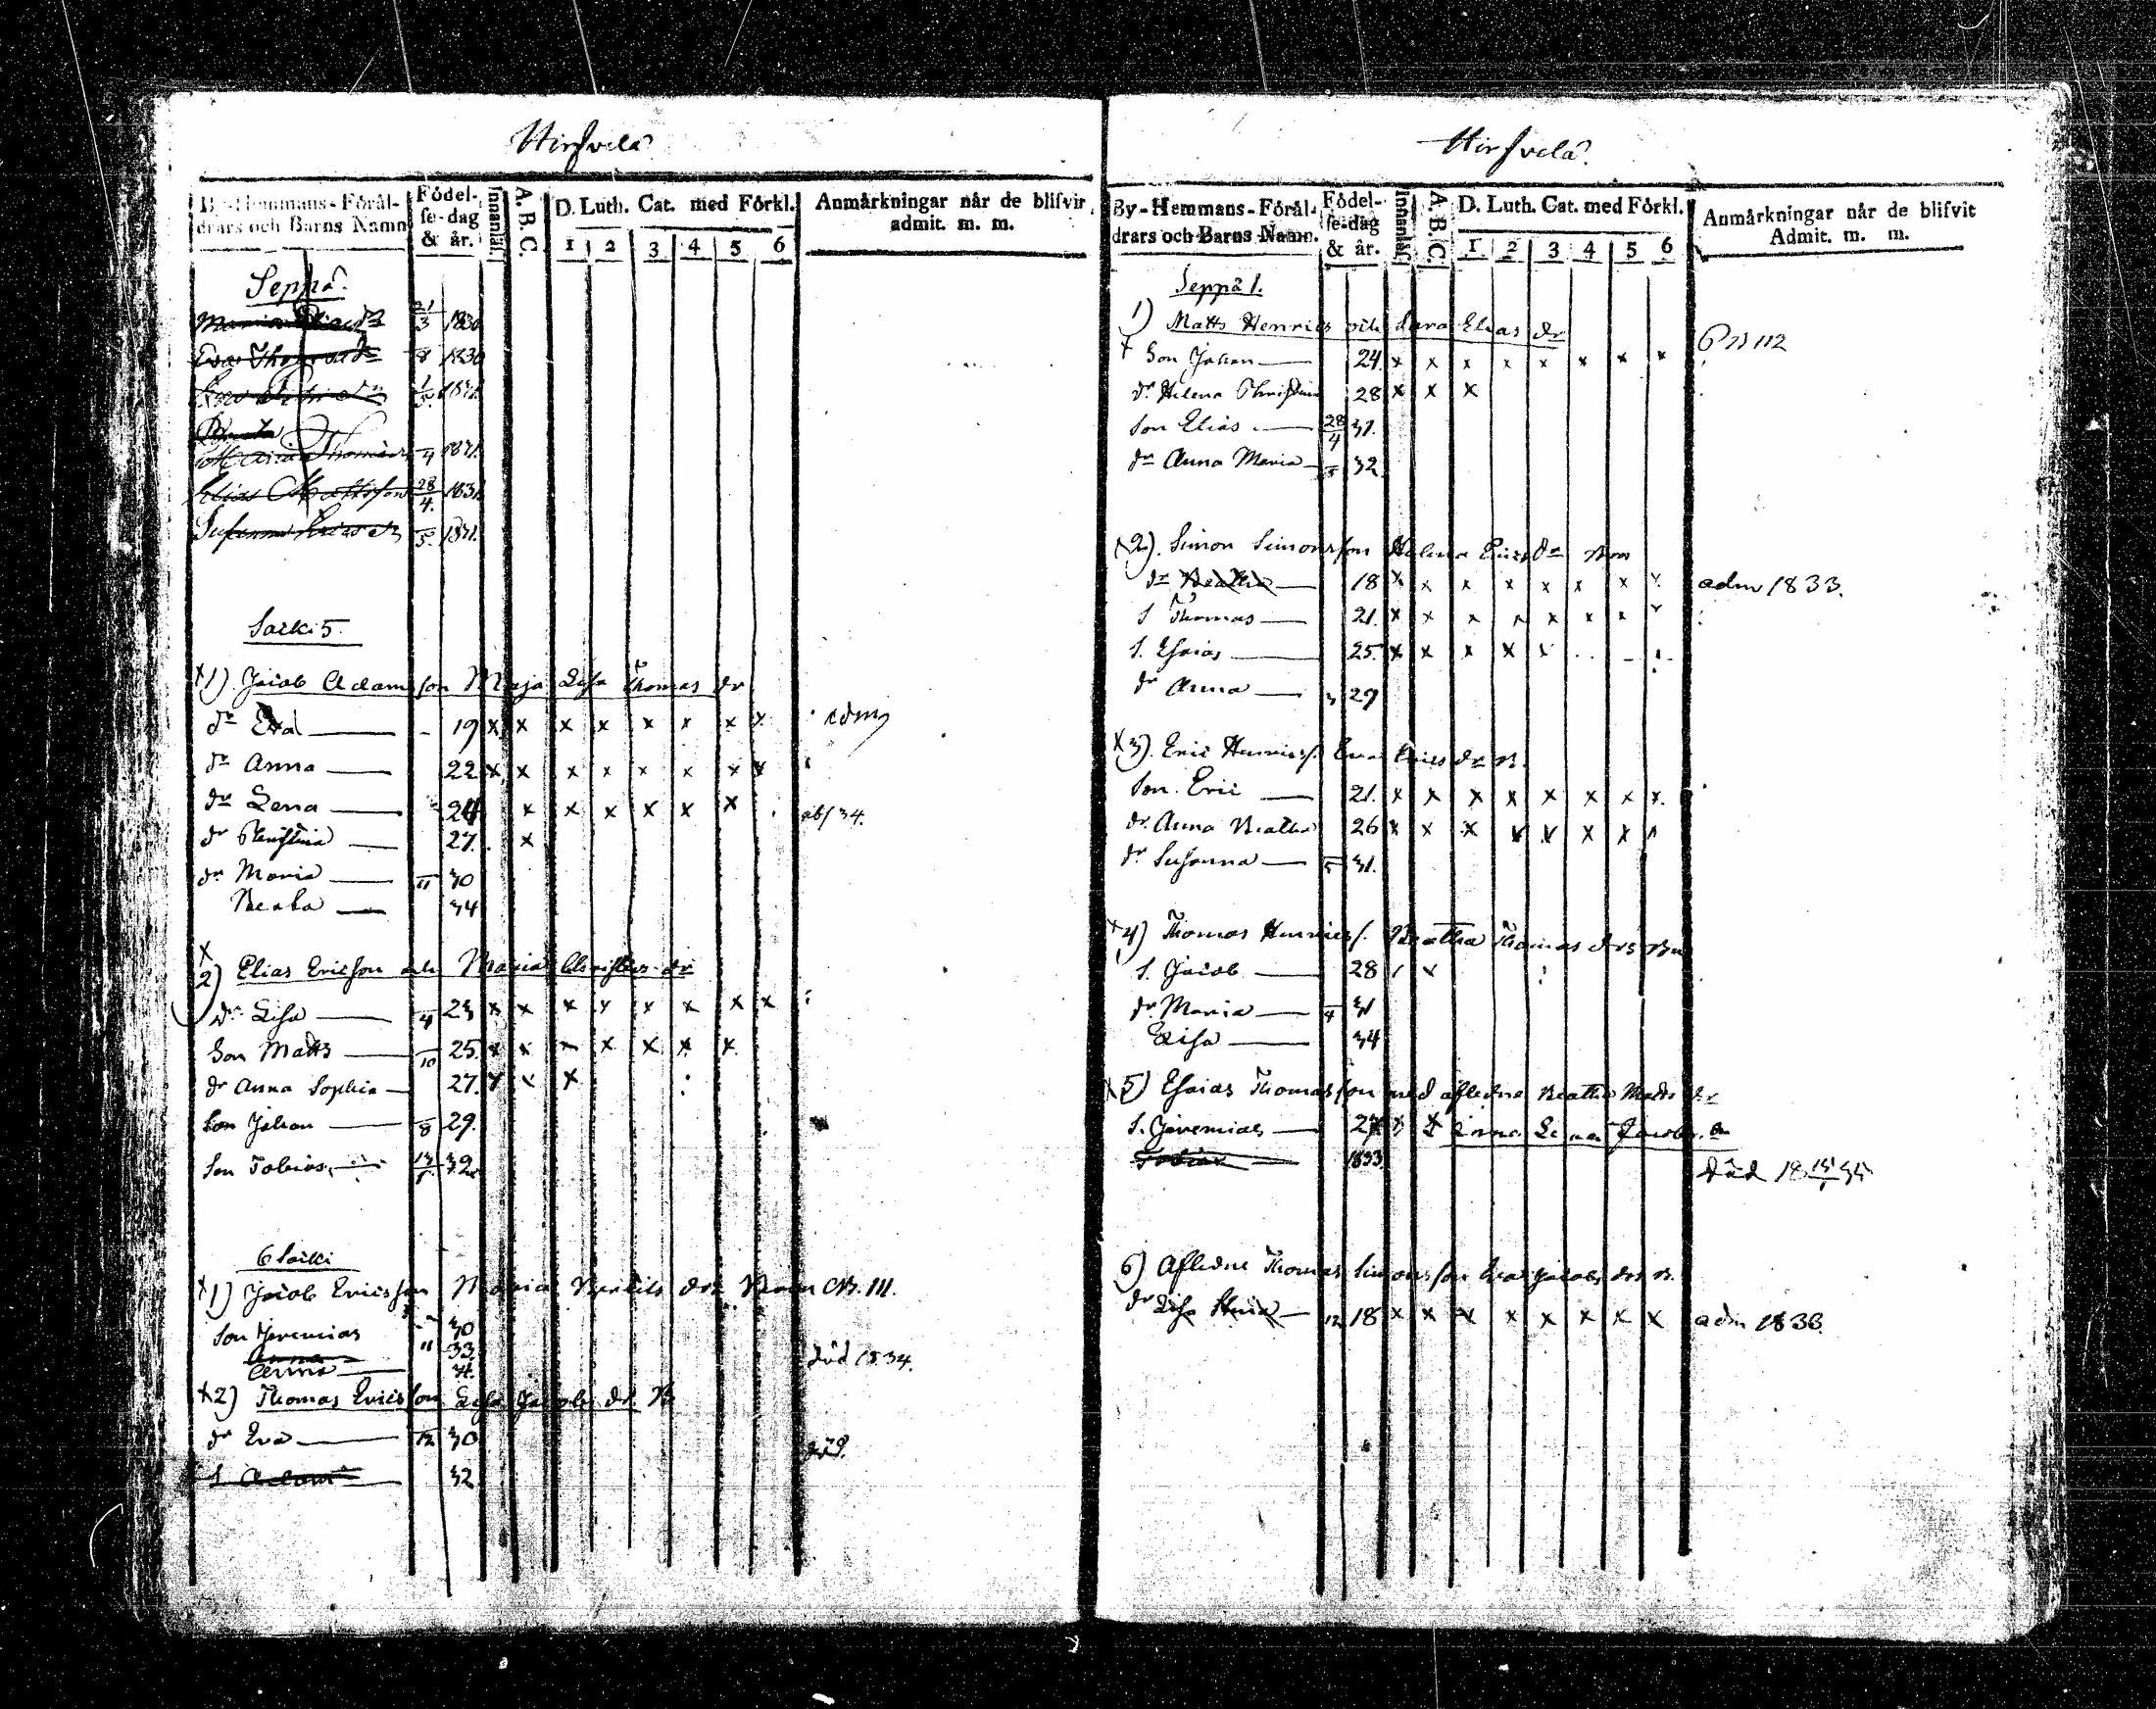 Hirfvelä
By-Hemmans-Förål-
drars och Barns Namn
Födel-
se-dag
& år.
Innanläs.
A. B. C.
D. Luth. Cat. med Förkl.
1 2 3 4 5 6
Anmårkningar når de blifvit
admit. m. m.
Seppä.
21/3 1830
Eva Thomasdr 8 1830
1/5 1831
Maria Thomasdr /4 1831.
Elias Mattsson 28/4 1831
Susanna Ericsdr /5 1831.
Särki 5.
x1) Jacob Adamsson Maja Lisa Thomas dr
dr Eva 19 x x x x x x x x adm
dr Anna 22 x x x x x x x x
dr Lena 24 x x x x x x abs 34.
dr Christina 27. x
dr Maria /11 30
Beata 34
x
2) Elias Ericsson och Maria Christers dr
dr Lisa /4 23 x x x x x x x x
Son Matts /10 25 x x x x x x x
dr Anna Sophia 27. x x x
Son Johan /8 29.
Son Tobias 32
6 Särki
x1) Jacob Ericsson Maria Bertils drs Barn CB. 111.
Son Jeremias 30
Anna 11 33 död 1834.
Anna 34.
x2) Thomas Ericsson Lisa Jacobs dr. B
dr Eva 12 30
S Adam 32 död.
Hirfvelä.
By-Hemmans-Förål-
drars och Barns Namn.
Födel-
se-dag
& år.
Innanläs.
A. B. C.
D. Luth. Cat. med Förkl.
1 2 3 4 5 6
Anmårkningar når de blifvit
Admit. m. m.
Seppä 1.
1) Matts Henrics och Sara Elias dr
x Son Johan 24. x x x x x x x x
dr Helena Christina 28 x x x
Son Elias 28/4 31.
dr Anna Maria 32
x2). Simon Simonsson Helena Erics dr Barn
dr Beatha 18 x x x x x x x x adm 1833.
S Thomas 21. x x x x x x x x
S. Esaias 25. x x x x x
dr Anna 29
x3). Eric Henricss. Eva Erics dr B.
Son. Eric 21. x x x x x x x x.
dr. Anna Beatha 26 x x x x x x x x
dr Susanna /5 31.
x4) Thomas Henricss. Beatha Thomas drs Bn
S. Jacob 28 x x
dr. Maria /4 31
Lisa 34
x5) Esaias Thomasson med afledne Beatha Matts dr
S. Jeremias 27 x
Tobias 1833
6) Afledne Thomas Simonsson Eva Jacobs drs B.
dr Lisa Stina 12 18 x x x x x x x x adm 1833.